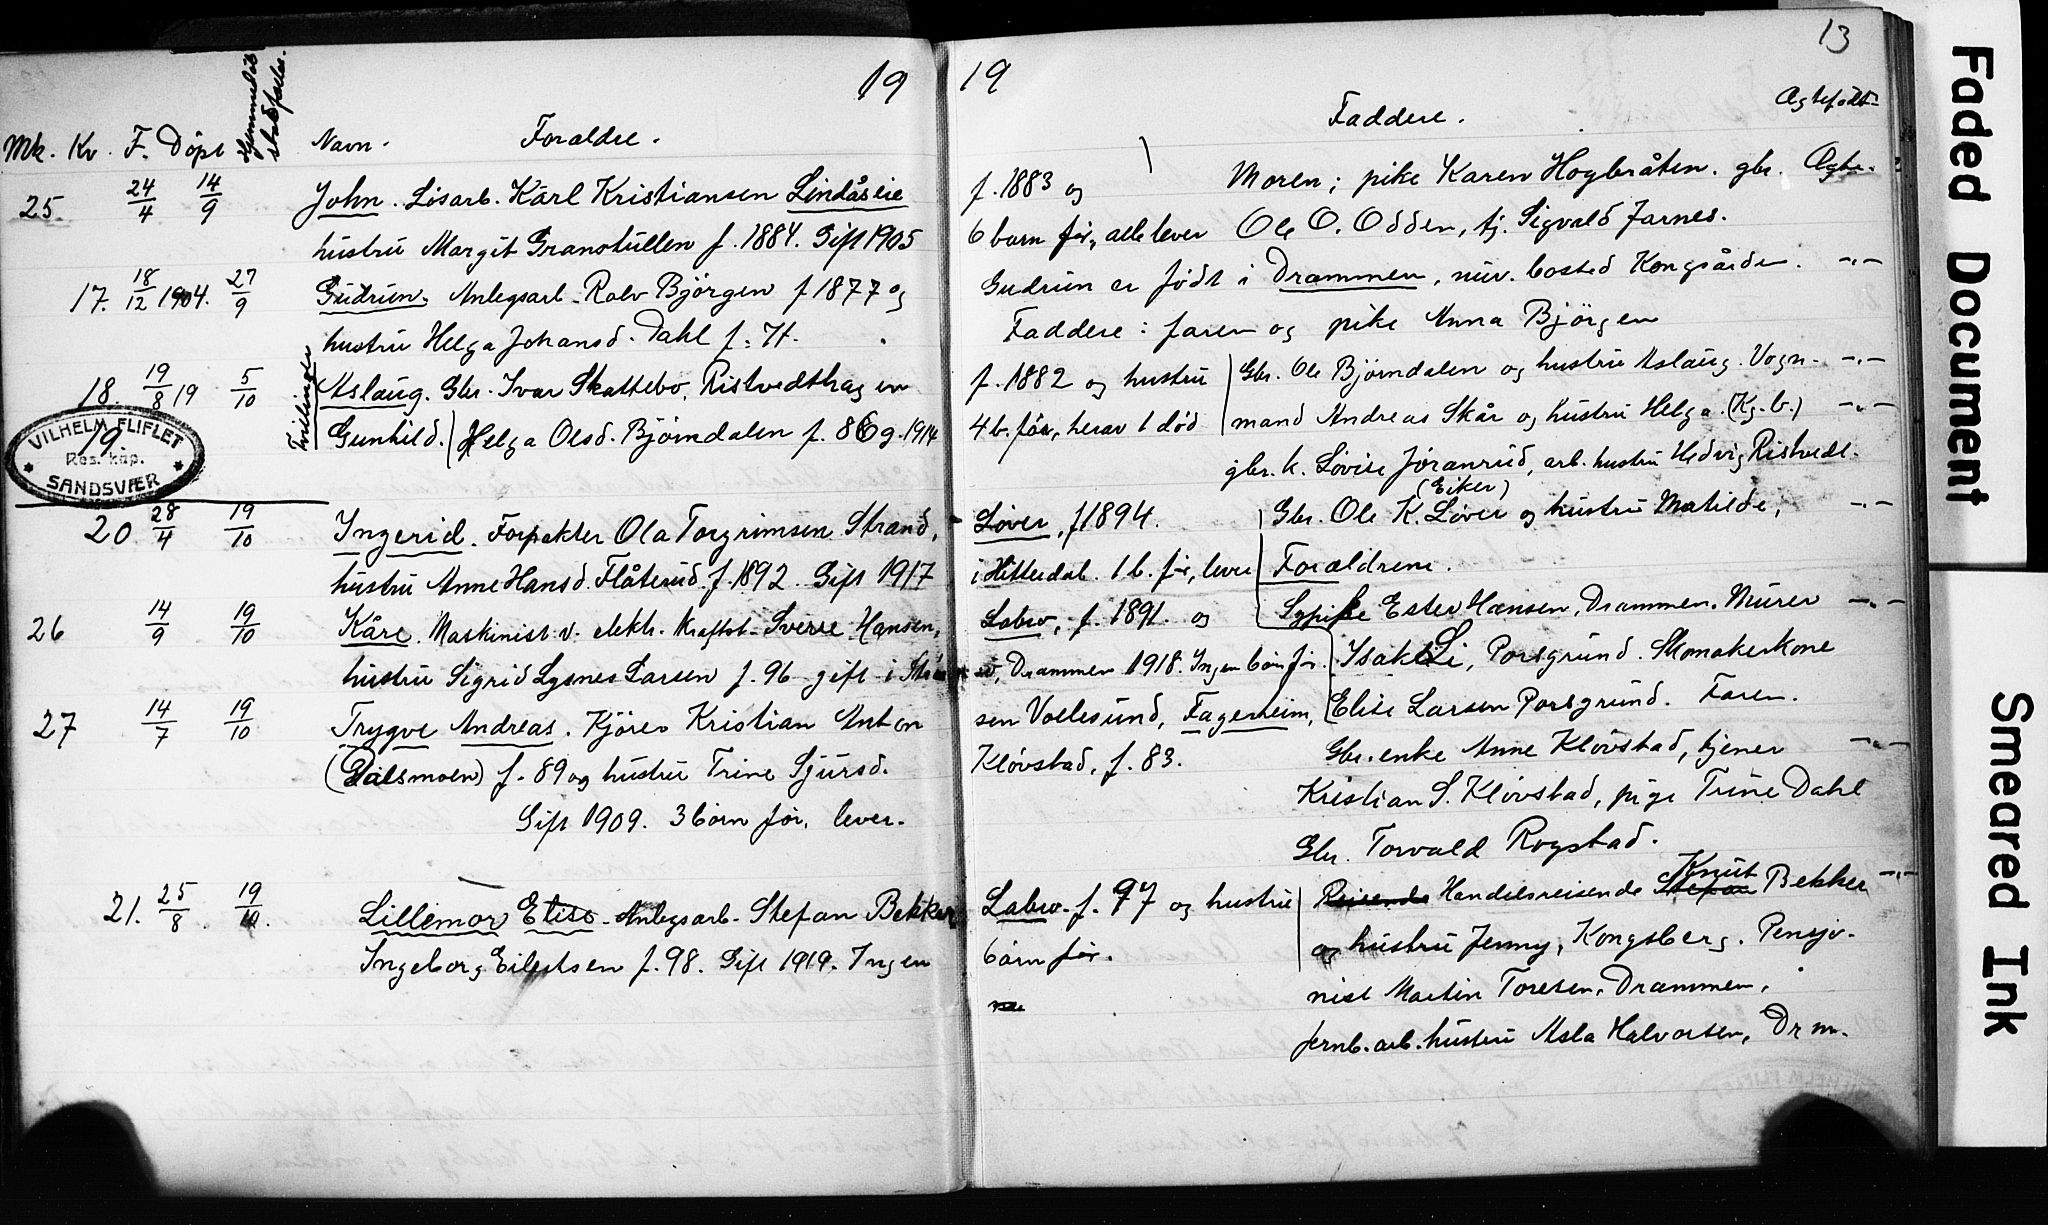 19
Mk. Kv. F. Döpt Navn. Foraldre.
25 24/4 14/9 John. Lösarb. Karl Kristiansen Lindåseie
hustru Margit Granstullen f. 1884. Gift 1905
17. 18/12 1904. 27/9 Gudrun. Anlegsarb. Rolv Bjørgen f 1877 og
hustru Helga Johansd. Dahl f. 74.
18. 19/8 19 5/10 Tvillinger Aslaug. Gbr. Ivar Skattebo, Ristvedthagen
19. Gunhild. Helga Olsd. Björndalen f. 86 g. 1914
VILHELM FLIFLET
Res. kap.
SANDSVÆR
20 28/4 19/10 Ingerid. Forpakter Ola Torgrimsen Strand,
hustru Anne Hansd. Flåterud f. 1892. Gift 1917
26 14/9 19/10 Kåre. Maskinist v. elektr. Kraftst. Sverre Hansen,
hustru Sigrid Lysnes Larsen f. 96 gift i
27 14/7 19/10 Trygve Andreas. Kjörer Kristian Anton
(Dalsmoen) f. 89 og hustru Trine Sjursd.
Gift 1909. 3 börn før, lever.
21. 25/8 19/10. Lillemor Elise. Anlegsarb. Stefan Bekker
Ingeborg Eilertsen f. 98. Gift 1919. Ingen
19 13
Faddere. Ægtefödt
f. 1883 og Moren; pike Karen Hogbråten. gbr. Ægte.
6 barn før, alle lever Ole O. Odden, tj. Sigvald Jarnes.
Gudrun er født i Drammen, nuv. bosted Kongsgården. -"-
Faddere: faren og pike Anna Bjørgen
f. 1882 og hustru Gbr. Ole Björndalen og hustru Aslaug. Vogn- -"-
4 b. før, herav 1 død mand Andreas Skår og hustru Helga. (Kg.b.) -"-
gbr. k. Lovise Jøranrud, arb. hustru Hedvig Ristvedt.
(Eiker)
Löver, f 1894. Gbr. Ole K. Løver og hustru Matilde, -"-
i Hitterdal. 1 b. før, lever Foraldrene.
Labro, f. 1891. og Sypike Ester Hansen, Drammen. Murer -"-
Drammen 1918. Ingen børn før. Isak Li, Porsgrund. Skomakerkone
sen Vollesund, Fagerheim, Elise Larsen Porsgrund. Faren.
Klövstad, f. 83. Gbr. enke Anne Klövstad, tjener -"-
Kristian S. Klövstad, pige Trine Dahl
Gbr. Torvald Rogstad.
Knut
Labro. f. 97 og hustru Reisende Handelsreisende Stefan Bekker -"-
børn før. og hustru Jenny, Kongsberg. Pensjo-
nist Martin Toresen, Drammen,
jernb. arb. hustru Asla Halvorsen, Drm.
Faded Document
Smeared Ink